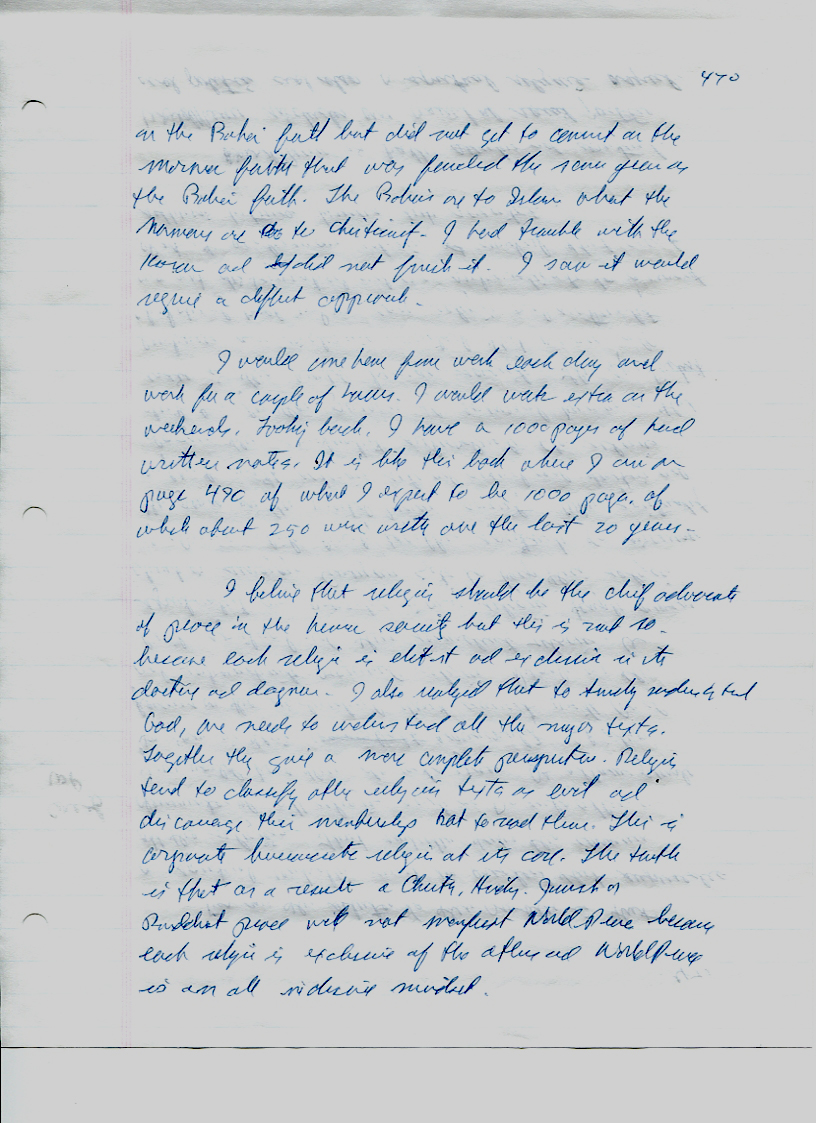 470
on the Bahai faith but did not get to comment on the
Mormon faith that was founded the same year as
the Bahai faith. The Bahais are to Islam what the
Mormons are to to I had trouble with the
Koran ad did not finish it. I saw it would
require a approach.
I would come home from work each day and
work for a couple of hours. I would work extra on the
weekends. Looking back, I have a 1000 pages of hand
written notes. It is like this book where I am on
page 490 of what I expect to be 1000 pages, of
which about 250 were written over the last 20 years.
I believe that religion should be the chief advocate
of peace in the human society but this is not so
because each religion is elitist ad exclusive in its
doctrine ad dogma. I also realized that to truly understand
God, one needs to understand all the major texts.
Together they give a more complete perspective. Religions
tend to classify other religions texts as evil ad
discourage their membership not to read them. This is
corporate religion at its core. The truth
is that as a result a Jewish or
Buddhist peace will not manifest World Peace because
each religion is exclusive of the other ad World Peace
is an all inclusive mindset.